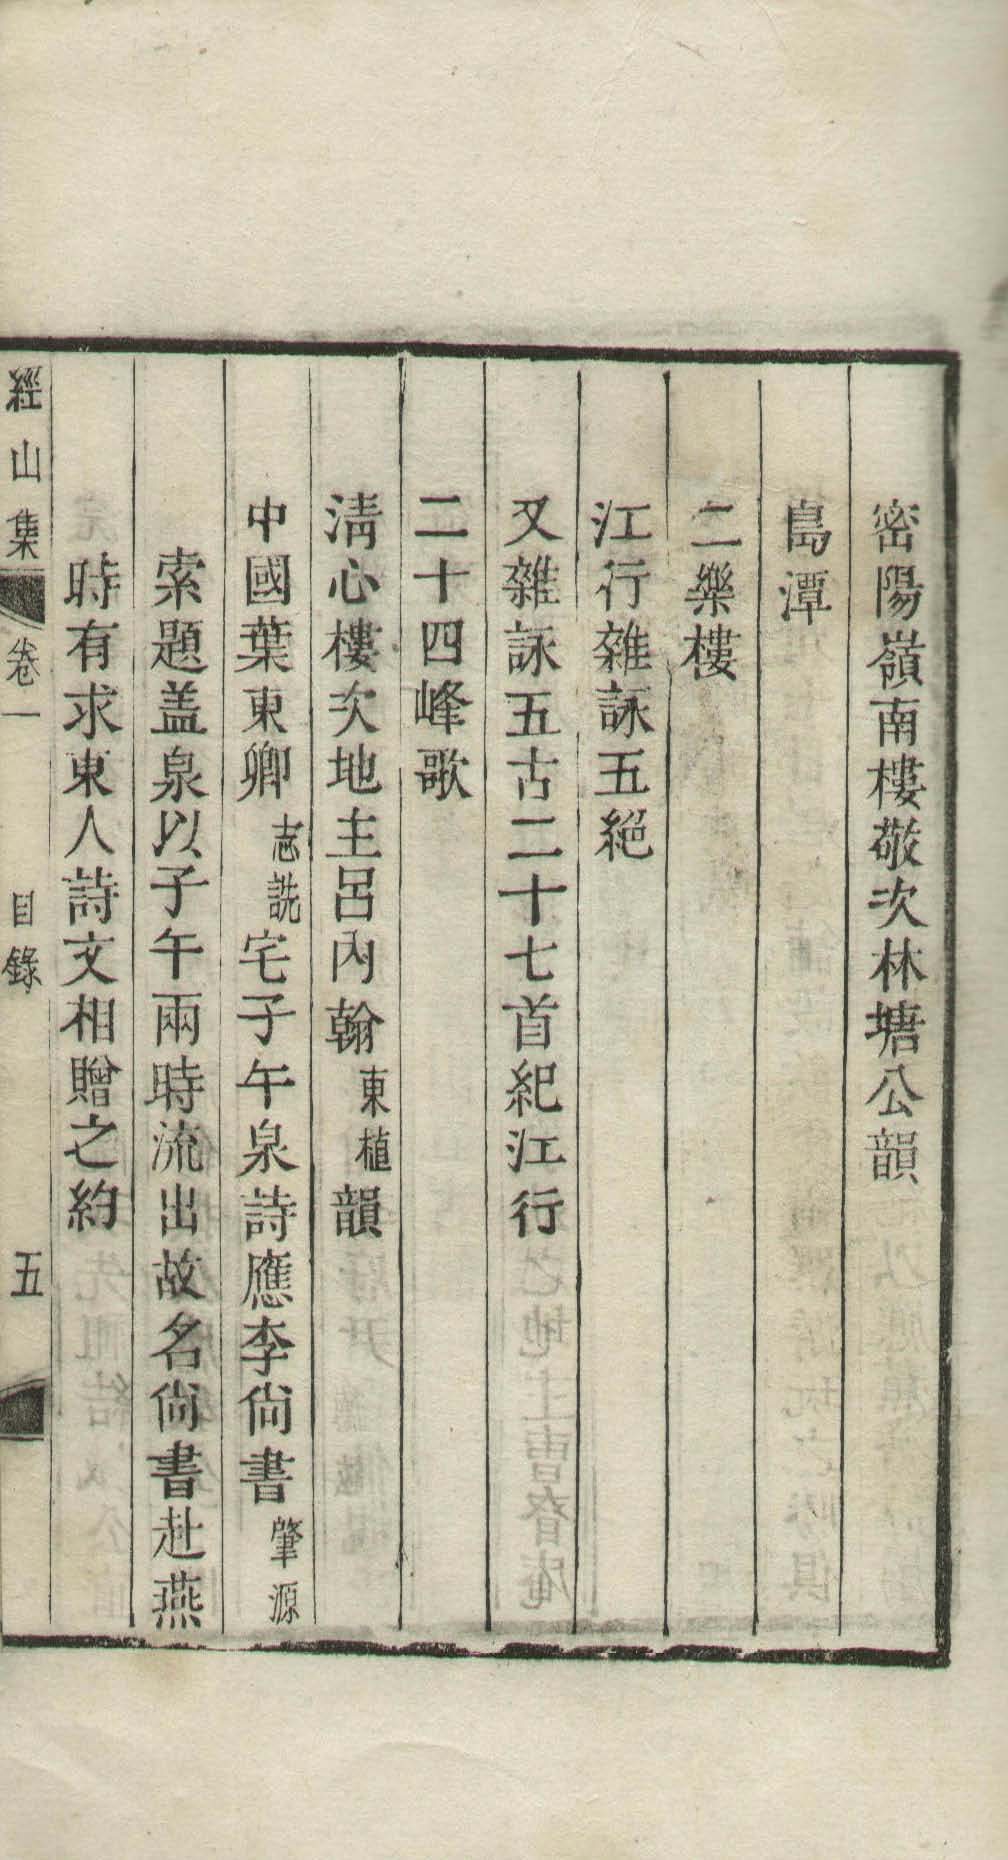 密陽嶺南樓敬次林塘公韻
島潭
二樂樓
江行雜詠五絕
又雜詠五古二十七首紀江行
二十四峰歌
淸心樓次地主呂內翰東植韻
中國葉東卿志詵宅子午泉詩應李尙書肇源
索題盖泉以子午兩時流出故名尙書赴燕
時有求東人詩文相贈之約
經山集 卷一 目錄 五